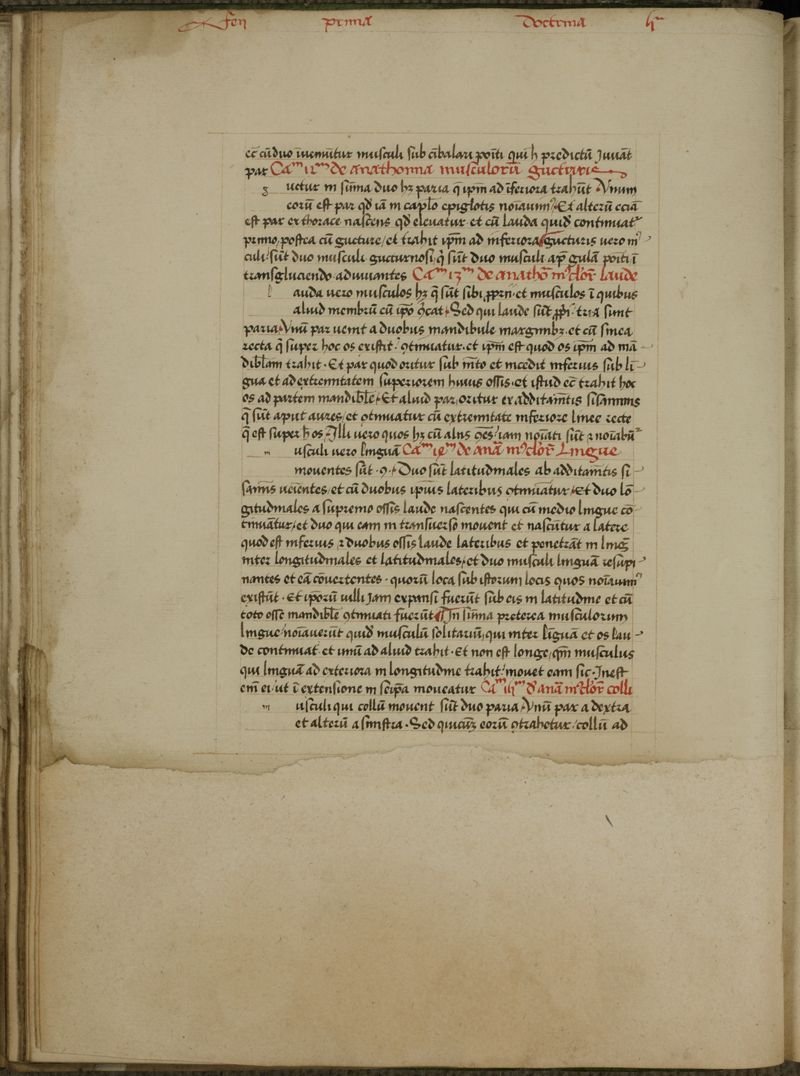 fen prima Doctrina
ee cū duo inveniūtur musculi sub cibalari poīti qui h̄ predictū Juuāt
par Cam de anathomia musculorū gucturis
uctur in sūma duo hȝ paria q̄ ipm̄ ad īferiora trahūt Vnum
eorū est par qđ iā in caplo epiglotis noīauimꝰ Et alterū eciā
est par ex thorace nascens qđ eleuatur et cū lauda quidē continuatʳ
primo postea cū gucture et trahit ipm̄ ad inferiora gucturis uero mꝰ
culi sūt duo musculi gucturnosi q̄ sūt duo musculi apud gulā poīti ī
transgluciendo adiuuantes Cam de anatho laude
auda uero musculos hȝ q̄ sūt sibi et musculos ī quibus
aliud membrū cū ipo Sed qui laude sūt tria sunt
paria Vnū par uenit a duobus mandibule marginibȝ et cū linea
recta q̄ super hoc os existit ꝯtinuatur et ipm̄ est quod os ipm̄ ad mā
diblam trahit Et par quod oritur sub mēto et incedit inferius sub li
gua et ad extremitatem superiorem huius ossis et istud ec̄ trahit hoc
os ad partem mandible Et aliud par oritur ex additamētis sisaminis
q̄ sūt aput aures et ꝯtinuatur cū extremitate inferiore linee recte
q̄ est super h̄ os Illi uero quos hȝ cū aliis oēs iam noīati sūt ꝛ noīabūʳ
usculi uero linguā Cam de anā Lingue
mouentes sūt 9 Duo sūt latitudinales ab additamētis si
saminis ueientes et cū duobus ipius lateribus ꝯtinuātur Et duo lō
gitudinales a supremo ossis laude nascentes qui cū medio lingue cō
tinuātur et duo qui eam in transuerso mouent et nascūtur a latere
quod est inferius ꝛ duobus ossis laude lateribus et penetrāt in lingē
inter longitudinales et latitudinales et duo musculi linguā resupi
nantes et eā cōuertentes quorū loca sub istorum locis quos noīauimꝰ
existūt Et iporū uilli jam expansi fuerūt sub eis in latitudine et cū
toto osse mandible ꝯtinuati fuerūt In sūma preterea musculorum
lingue noīauerūt quidē musculū solitariū qui inter liguā et os lau
de continuat et unū ad aliud trahit Et non est longe qm̄ musculus
qui linguā ad exteriora in longitudine trahit mouet eam sic Inest
em̄ ei ut ī extensione in seipa moueatur Cam anā colli
usculi qui collū mouent sūt duo paria Vnū par a dextra
et alterū a sinistra Sed quicūqȝ eorū ꝯtrahetur collū ad